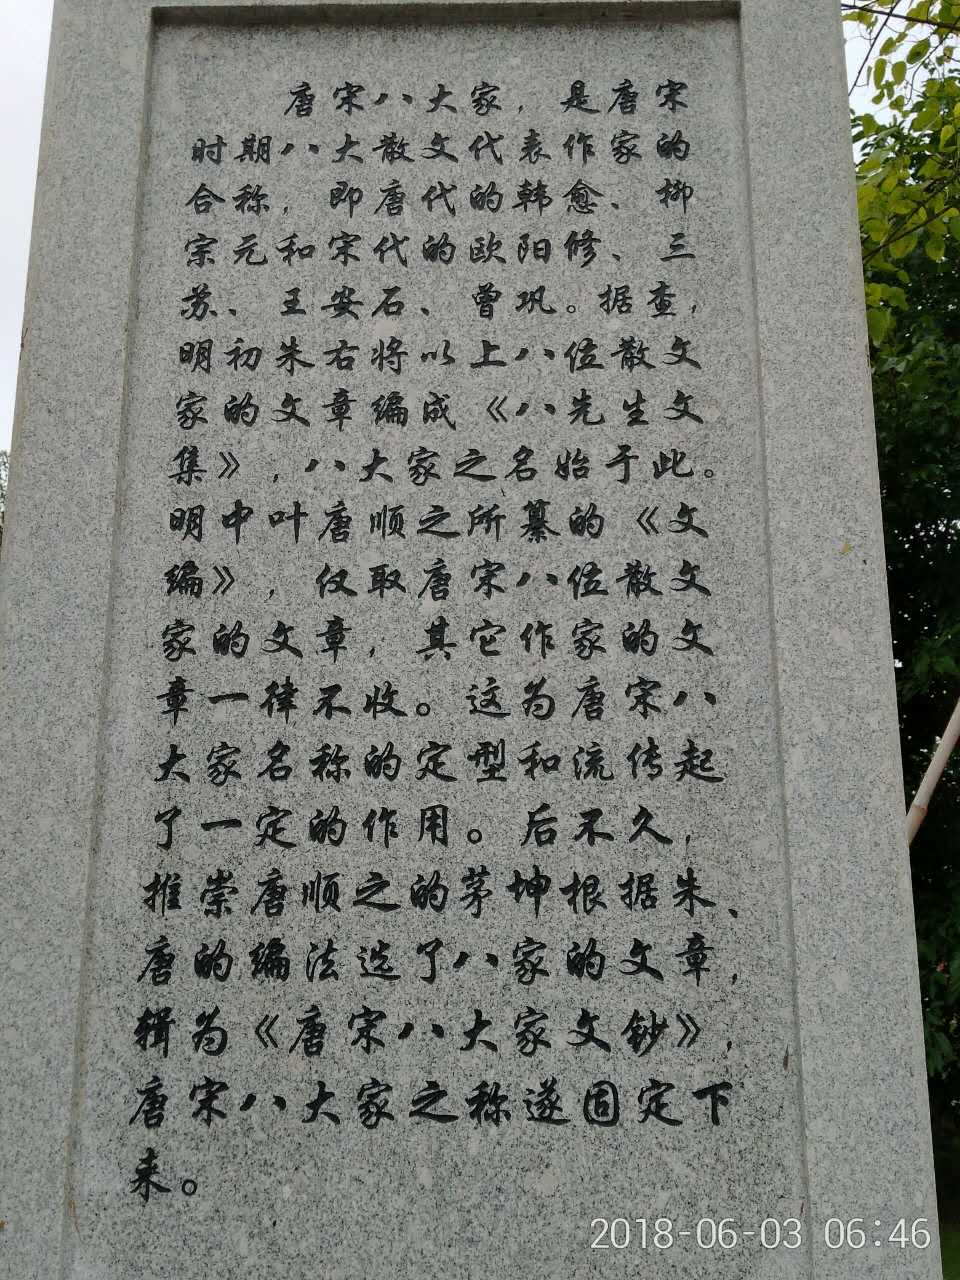 唐宋八大家，是唐宋
时期八大散文代表作家的
合称，即唐代的韩愈、柳
宗元和宋代的欧阳修、三
苏、王安石、曾巩。据查，
明初朱右将以上八位散文
家的文章编成《八先生文
集》，八大家之名始于此。
明中叶唐顺之所纂的《文
编》，仅取唐宋八位散文
家的文章，其它作家的文
章一律不收。这为唐宋八
大家名称的定型和流传起
了一定的作用。后不久，
推崇唐顺之的茅坤根据朱、
唐的编法选了八家的文章，
辑为《唐宋八大家文钞》，
唐宋八大家之称遂固定下
来。
2018-06-03 06:46